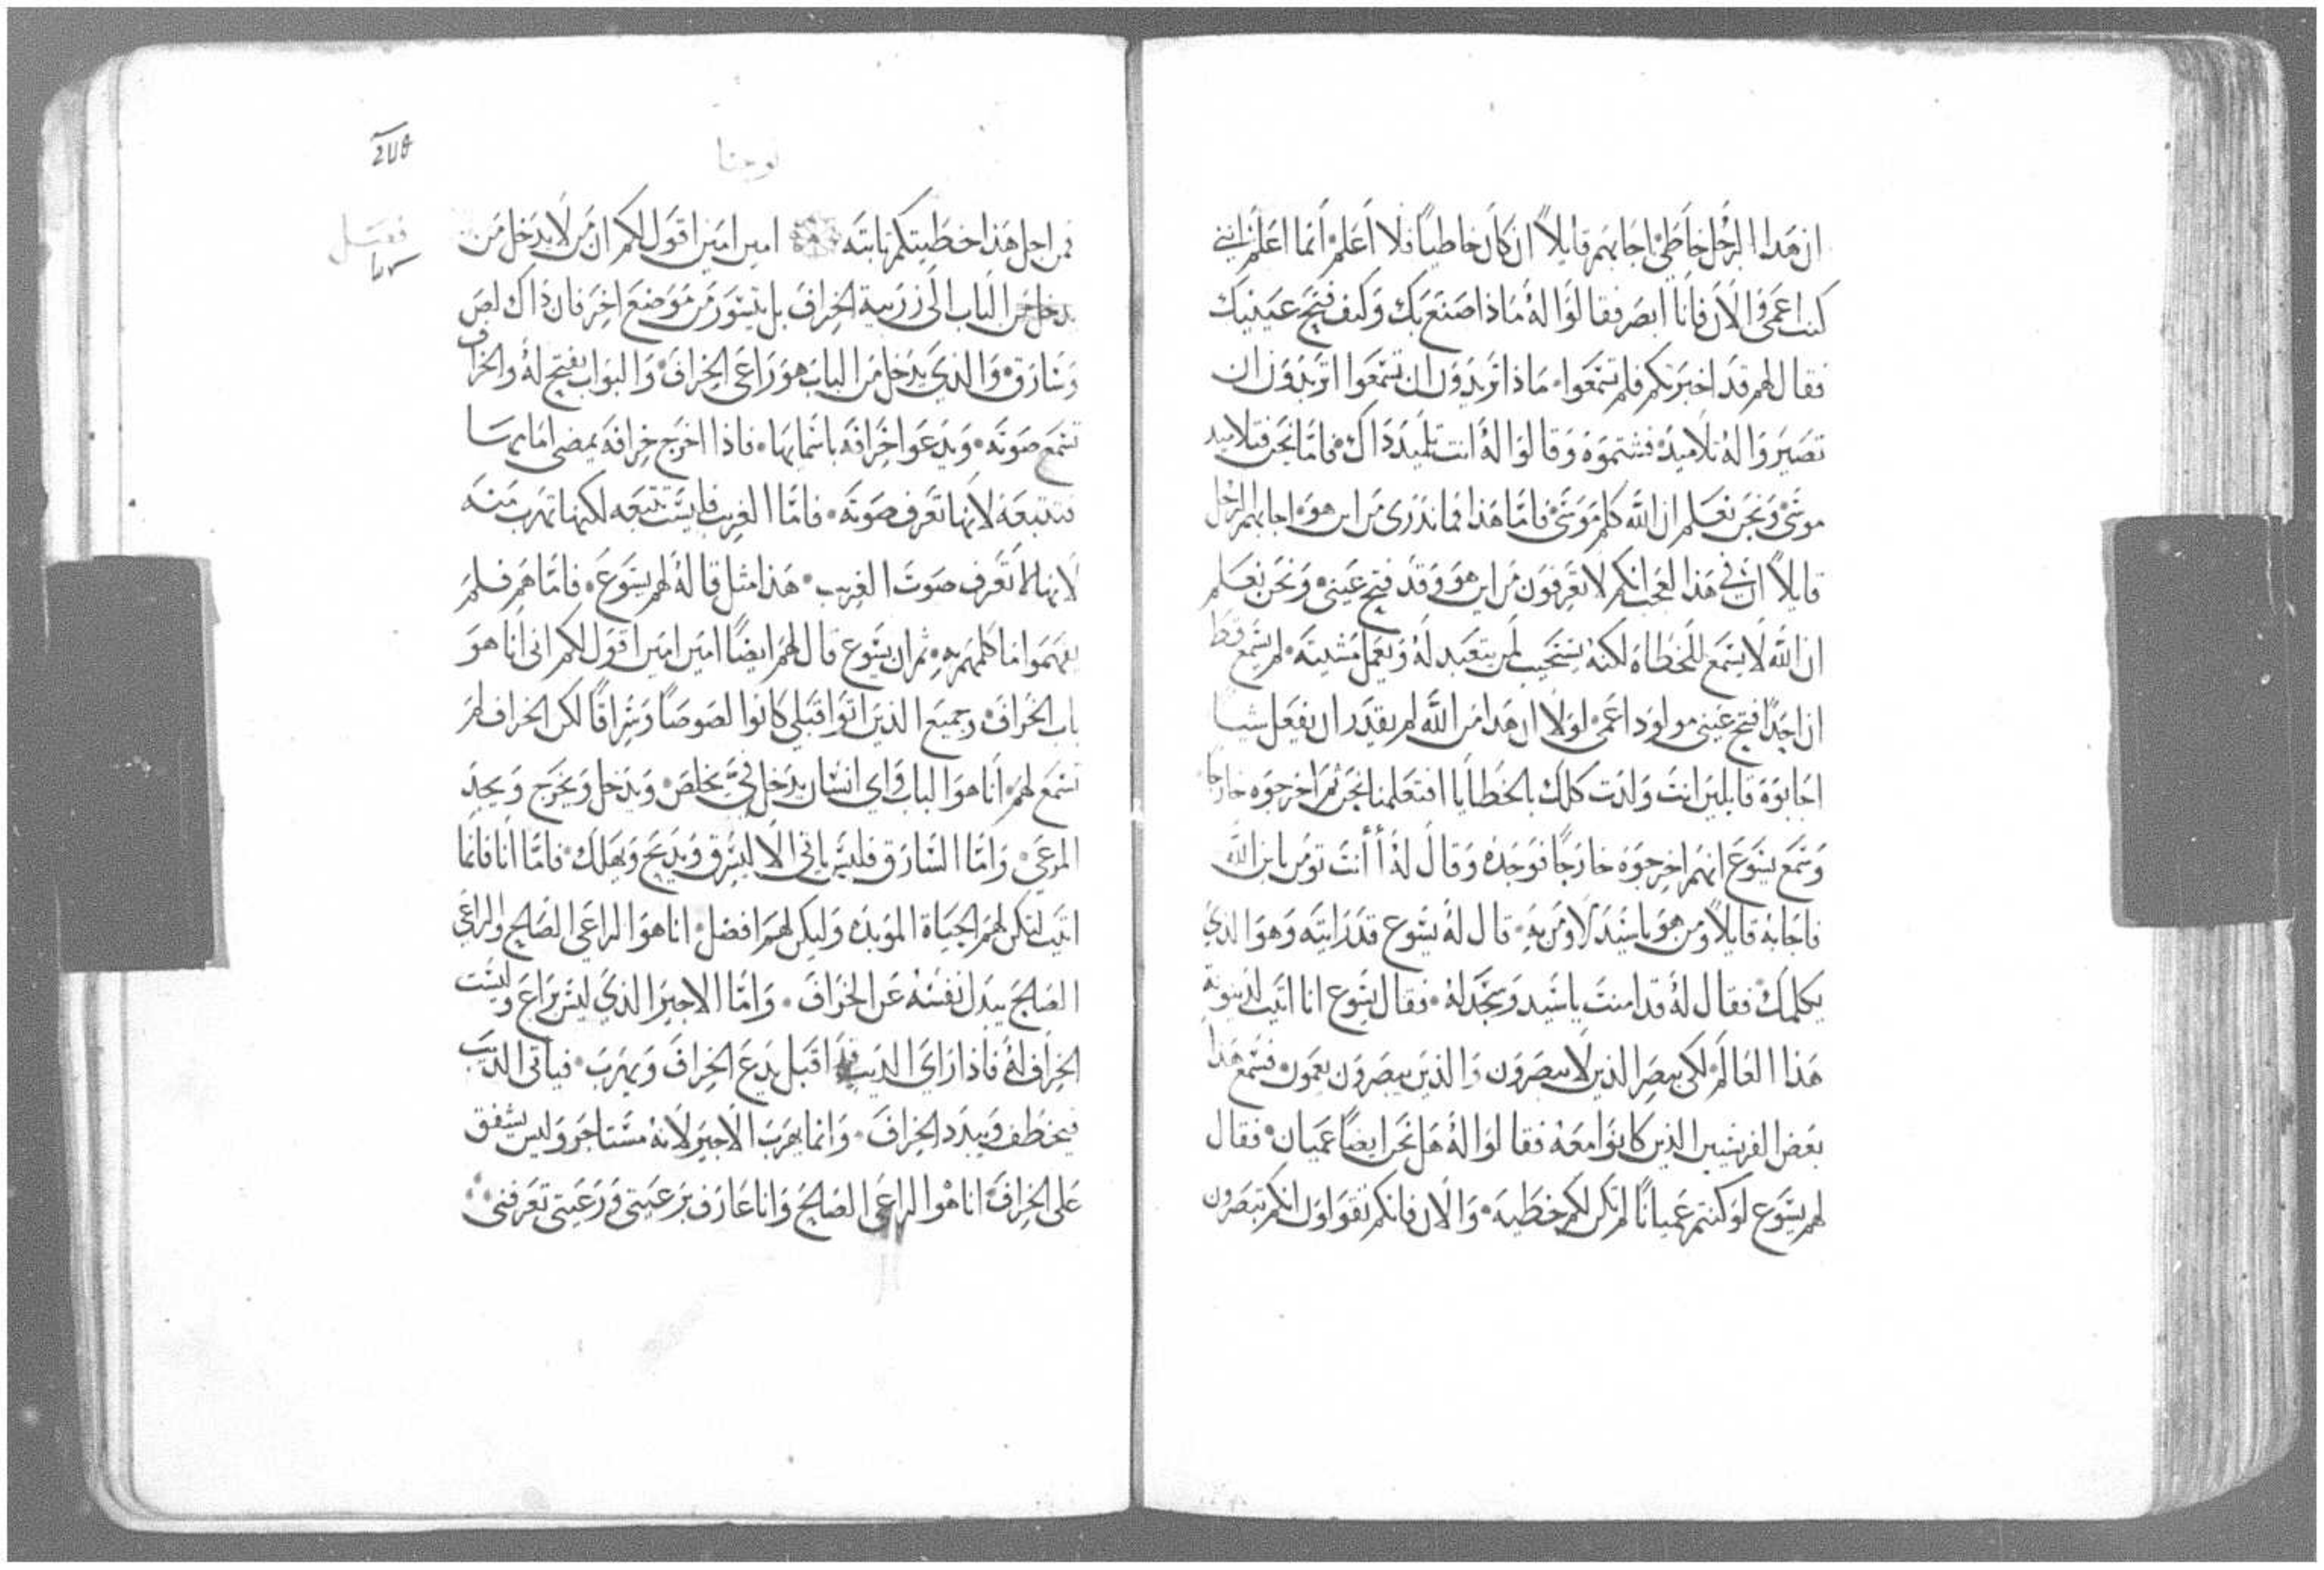 ان هذا الرجل خاطئ اجابهم قايلاً ان كان خاطياً فلا اعلم انما اعلم انني
كنت اعمى والان فانا ابصر فقالوا له ماذا صنع بك وكيف فتح عينيك
فقال لهم قد اخبرتكم فلم تسمعوا ماذا تريدون ان تسمعوا اتريدون ان
تصيروا له تلاميذ فشتموه وقالوا له انت تلميذ ذاك فاما نحن فتلاميذ
موسى ونحن نعلم ان الله كلم موسى فاما هذا فما ندري من اين هو اجابهم الرجل
قايلاً ان في هذا لعجب انكم لا تعرفون من اين هو وقد فتح عيني ونحن نعلم
ان الله لا يسمع للخطاه لكنه يستجيب لمن يتعبد له ويعمل مشيته لم يسمع قط
ان احداً فتح عيني مولود اعمى لولا ان هذا من الله لم يقدر ان يفعل شيا
اجابوه قايلين انت ولدت كلك بالخطايا افتعلمنا نحن ثم اخرجوه خارجا
وسمع يسوع انهم اخرجوه خارجًا فوجده وقال له أأنت تومن بابن الله
فاجابه قايلاً ومن هو ياسيد لاومن به قال له يسوع قد رايته وهو الذي
يكلمك فقال له قد امنت ياسيد وسجد له فقال يسوع انا اتيت لدينونة
هذا العالم لكي يبصر الذين لا يبصرون والذين يبصرون يعمون فسمع هذا
بعض الفريسيين الذين كانوا معه فقالوا له هل نحن ايضاً عميان فقال
لهم يسوع لو كنتم عمياناً لم تكن لكم خطيه والان فانكم تقولون انكم تبصرون
يوحنا
فمن اجل هذا خطيتكم ثابته امين امين اقول لكم ان من لا يدخل من
يدخل من الباب الى زريبة الخراف بل يتسور من موضع اخر فان ذاك لص
وسارق والذي يدخل من الباب هو راعي الخراف والبواب يفتح له والخراف
تسمع صوته ويدعوا خرافه باسمايها فاذا اخرج خرافه يمضي امامها
فتتبعه لانها تعرف صوته فاما الغريب فليست تتبعه لكنها تهرب منه
لانها لا تعرف صوت الغريب هذا مثل قاله لهم يسوع فاما هم فلم
يفهموا ما كلمهم به ثم ان يسوع قال لهم ايضًا امين امين اقول لكم اني انا هو
باب الخراف وجميع الذين اتوا قبلي كانوا لصوصًا وسراقًا لكن الخراف لم
تسمع لهم انا هو الباب فاي انسان يدخل في يخلص ويدخل ويخرج ويجد
المرعى واما السارق فليس ياتي الا ليسرق ويذبح ويهلك فاما انا فانما
اتيت لتكن لهم الحياة المؤبده وليكن لهم افضل انا هو الراعي الصالح والراعي
الصالح يبذل نفسه عن الخراف واما الاجير الذي ليس براع وليست
الخراف له فاذا راى الذيب قد اقبل يدع الخراف ويهرب فياتي الذيب
فيخطف ويبدد الخراف وانما يهرب الاجير لانه مستاجر وليس يشفق
على الخراف انا هو الراعي الصالح وانا عارف برعيتي ورعيتي تعرفني
فصل